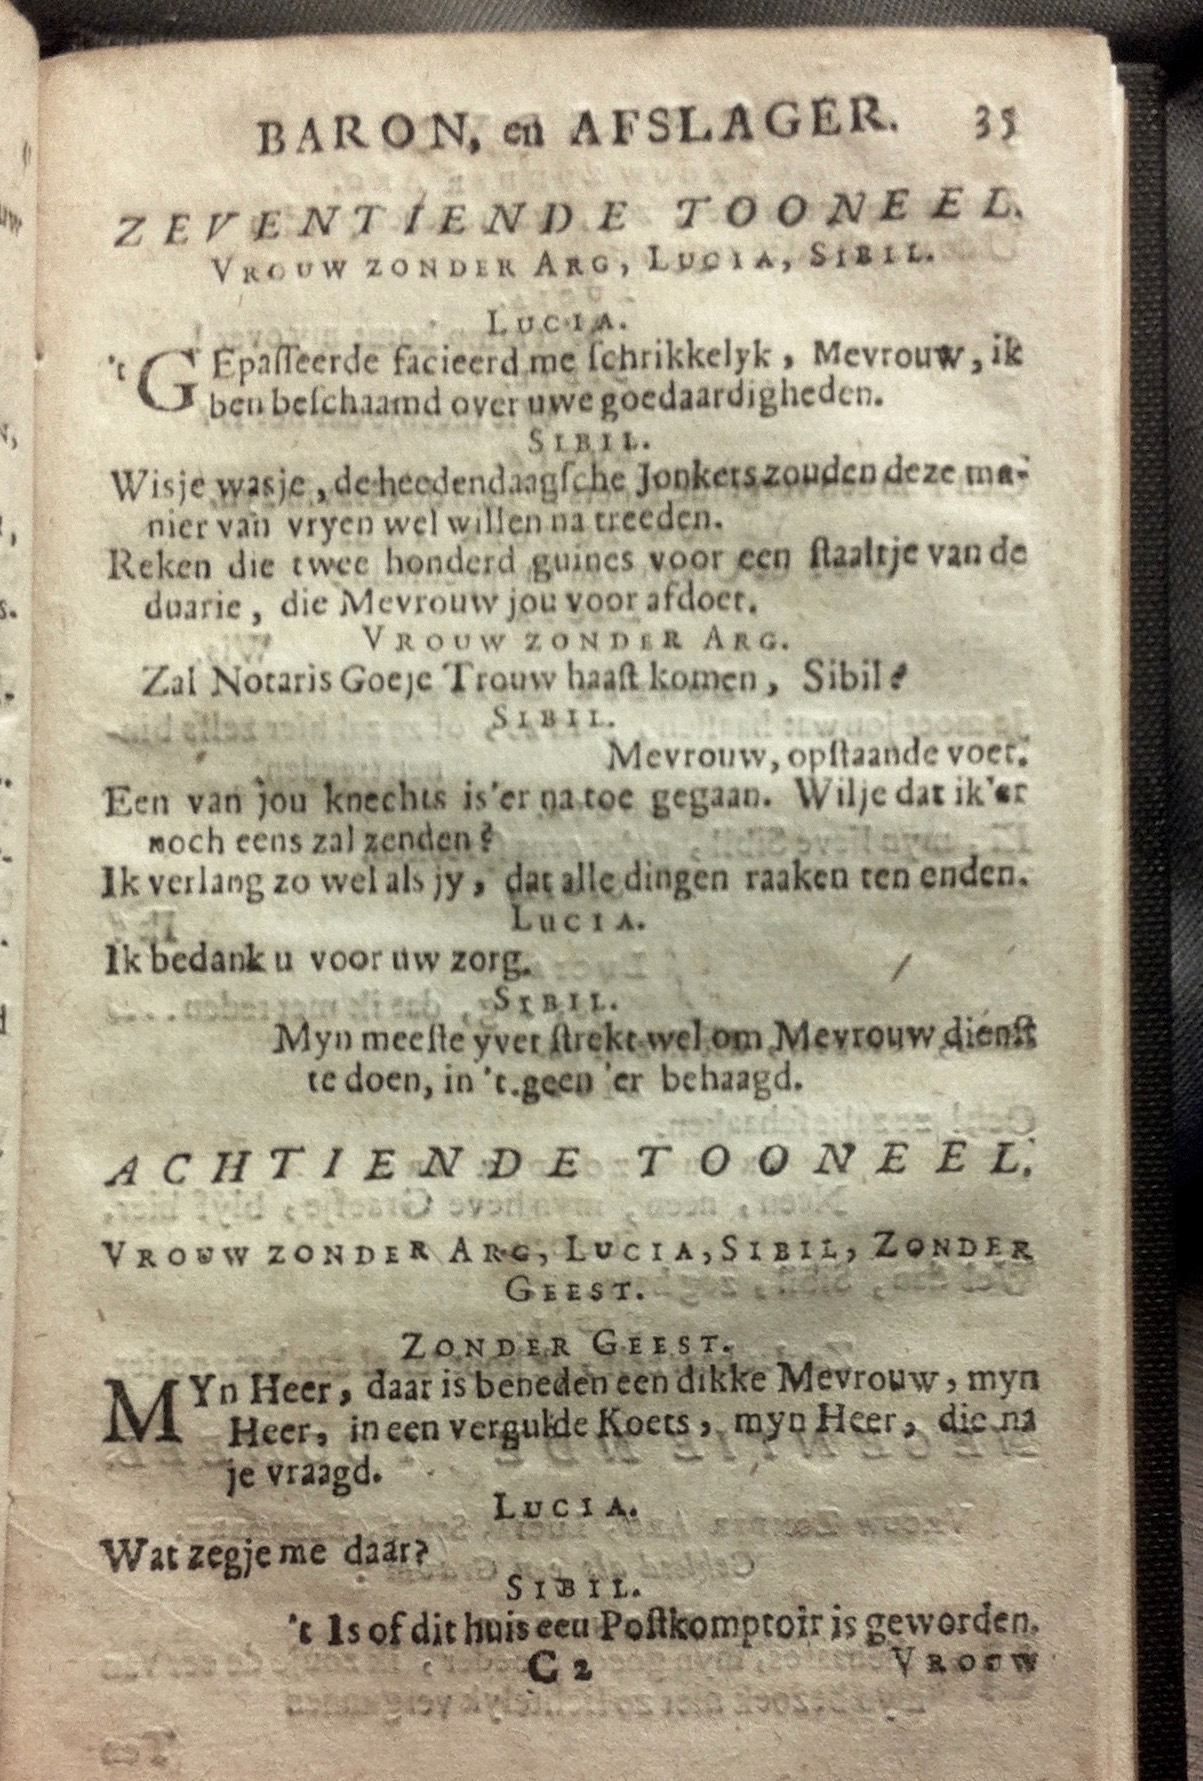 BARON, en AFSLAGER. 35
ZEVENTIENDE TOONEEL.
VROUW ZONDER ARG, LUCIA, SIBIL.
LUCIA.
't GEpaſſeerde facieerd me ſchrikkelyk, Mevrouw, ik
ben beſchaamd over uwe goedaardigheden.
SIBIL.
Wisje wasje, de heedendaagſche Jonkers zouden deze ma-
nier van vryen wel willen na treeden.
Reken die twee honderd guines voor een ſtaaltje van de
duarie, die Mevrouw jou voor afdoet.
VROUW ZONDER ARG.
Zal Notaris Goeje Trouw haaſt komen, Sibil?
SIBIL.
Mevrouw, opſtaande voet.
Een van jou knechts is'er na toe gegaan. Wilje dat ik'er
noch eens zal zenden?
Ik verlang zo wel als jy, dat alle dingen raaken ten enden.
LUCIA.
Ik bedank u voor uw zorg.
SIBIL.
Myn meeſte yver ſtrekt wel om Mevrouw dienſt
te doen, in 't geen 'er behaagd.
ACHTIENDE TOONEEL.
VROUW ZONDER ARG, LUCIA, SIBIL, ZONDER
GEEST.
ZONDER GEEST.
MYn Heer, daar is beneden een dikke Mevrouw, myn
Heer, in een vergulde Koets, myn Heer, die na
je vraagd.
LUCIA.
Wat zegje me daar?
SIBIL.
't Is of dit huis een Poſtkomptoir is geworden.
C 2 VROUW